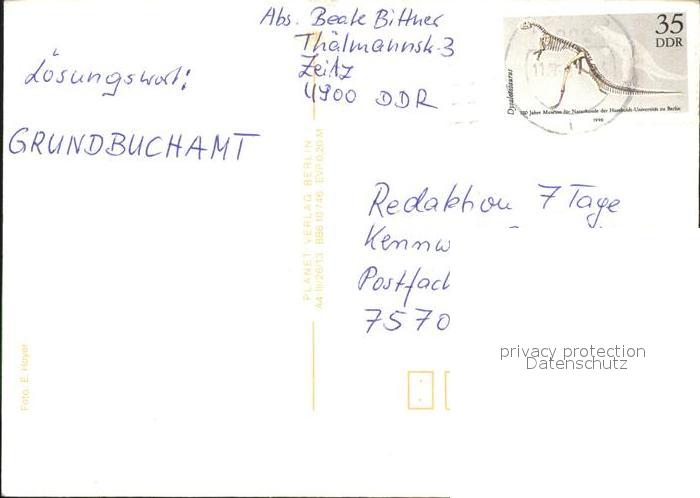 Abs. Beate Bittner
Thälmannstr. 3
Zeitz
4900 DDR
Lösungswort:
GRUNDBUCHAMT
35
DDR
Dysalotosaurus
100 Jahre Museum für Naturkunde der Humboldt-Universität zu Berlin
1990
11.
Redaktion 7 Tage
Kennw
Postfach
7570
PLANET VERLAG BERLIN
A4 III/26/13 EVP 0,20 M
Foto: E. Hoyer
privacy protection
Datenschutz